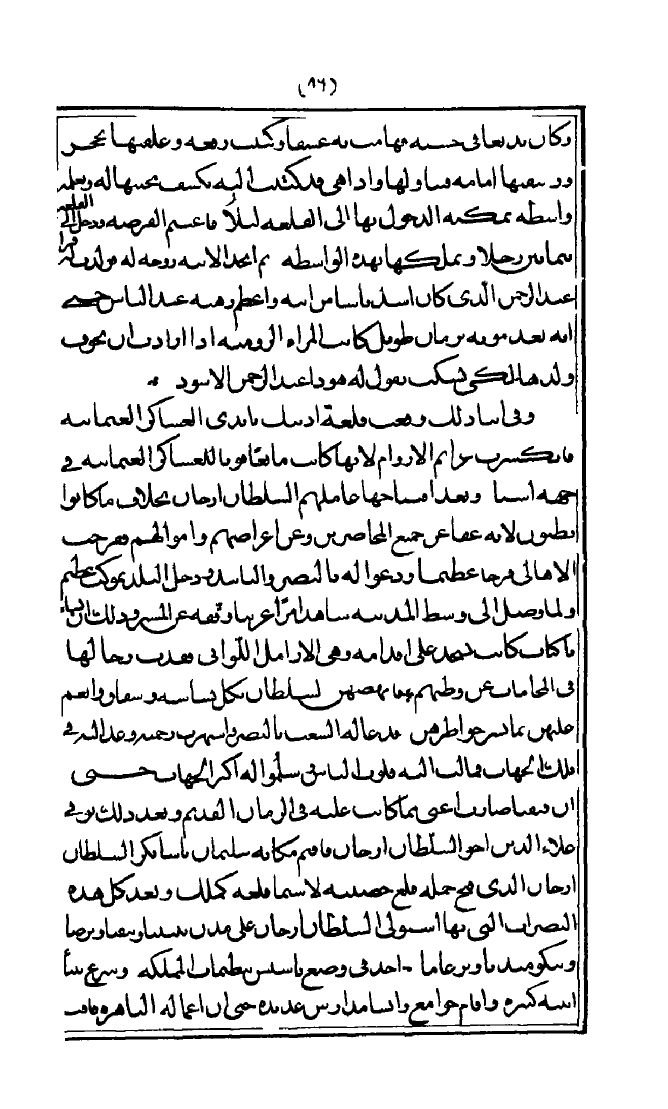 (٩٦)
وكان يديعا في حسنه فهامت به عشقا وكتبت رقعه وعلقتها بحجر
ورمتها امامه فتناولها واذا هي قد كتبت اليه تكشف محبتها له وتعلمه
واسطه تمكنه الدخول بها الى القلعه ليلاً فاغتنم الفرصه ودخل الى القلعه
بثمانين رجلا وتملكها بهذه الواسطه ثم اتخذ الابنه زوجه له فولدت له قرا
عبد الرحمن الذي كان اشد باسا من ابيه واعظم رهبه عند الناس حتى
انه بعد موته بزمان طويل كانت المراه الروميه اذا ارادت ان تخوف
ولدها لكي يسكت تقول له هوذا عبد الرحمن الاسود
وفي اثنا ذلك وقعت قلعة ايدى العساكر العثمانيه
فانكسرت عزائم الاروام لانها كانت مانعًا قويا للعساكر العثمانيه في
جهه اسيا وبعد افتتاحها عاملهم السلطان ارخان بخلاف ما كانوا
يظنون لانه عفا عن جميع المحاصرين وعن اعراضهم واموالهم ففرحت
الاهالي فرحا عظيما ودعوا له بالنصر والتاييد ودخل البلد بموكب عظيم
ولما وصل الى وسط المدينه شاهد امرًا غريبا وقفه عن المسير وذلك ان نساء
باكيات كانت تسجد على اقدامه وهي الارامل اللواتي فقدت رجالها
في المحامات عن وطنهم فانهضهن السلطان بكل بشاشه وشفقه وانعم
عليهن بما يسر خواطرهن فدعا له الشعب بالنصر واشتهرت رحمته وعدالته في
تلك الجهات فمالت اليه قلوب الناس وسلموا له اكثر الجهات حتى
ان صارت اغنى مما كانت عليه في الزمان القديم وبعد ذلك توفي
علاء الدين اخو السلطان ارخان فاقيم مكانه سليمان باشا بكر السلطان
ارخان الذي فتح جمله قلع حصينه لاسيما قلعه كمللك وبعد كل هذه
النصرات التي بها استولى السلطان ارخان على مدن
اخذ في وضع تاسيس نظمات المملكه وشرع ببنا
ابنيه كثيره واقام جوامع وانشا مدارس عديده حتى ان اعماله الباهره فاقت